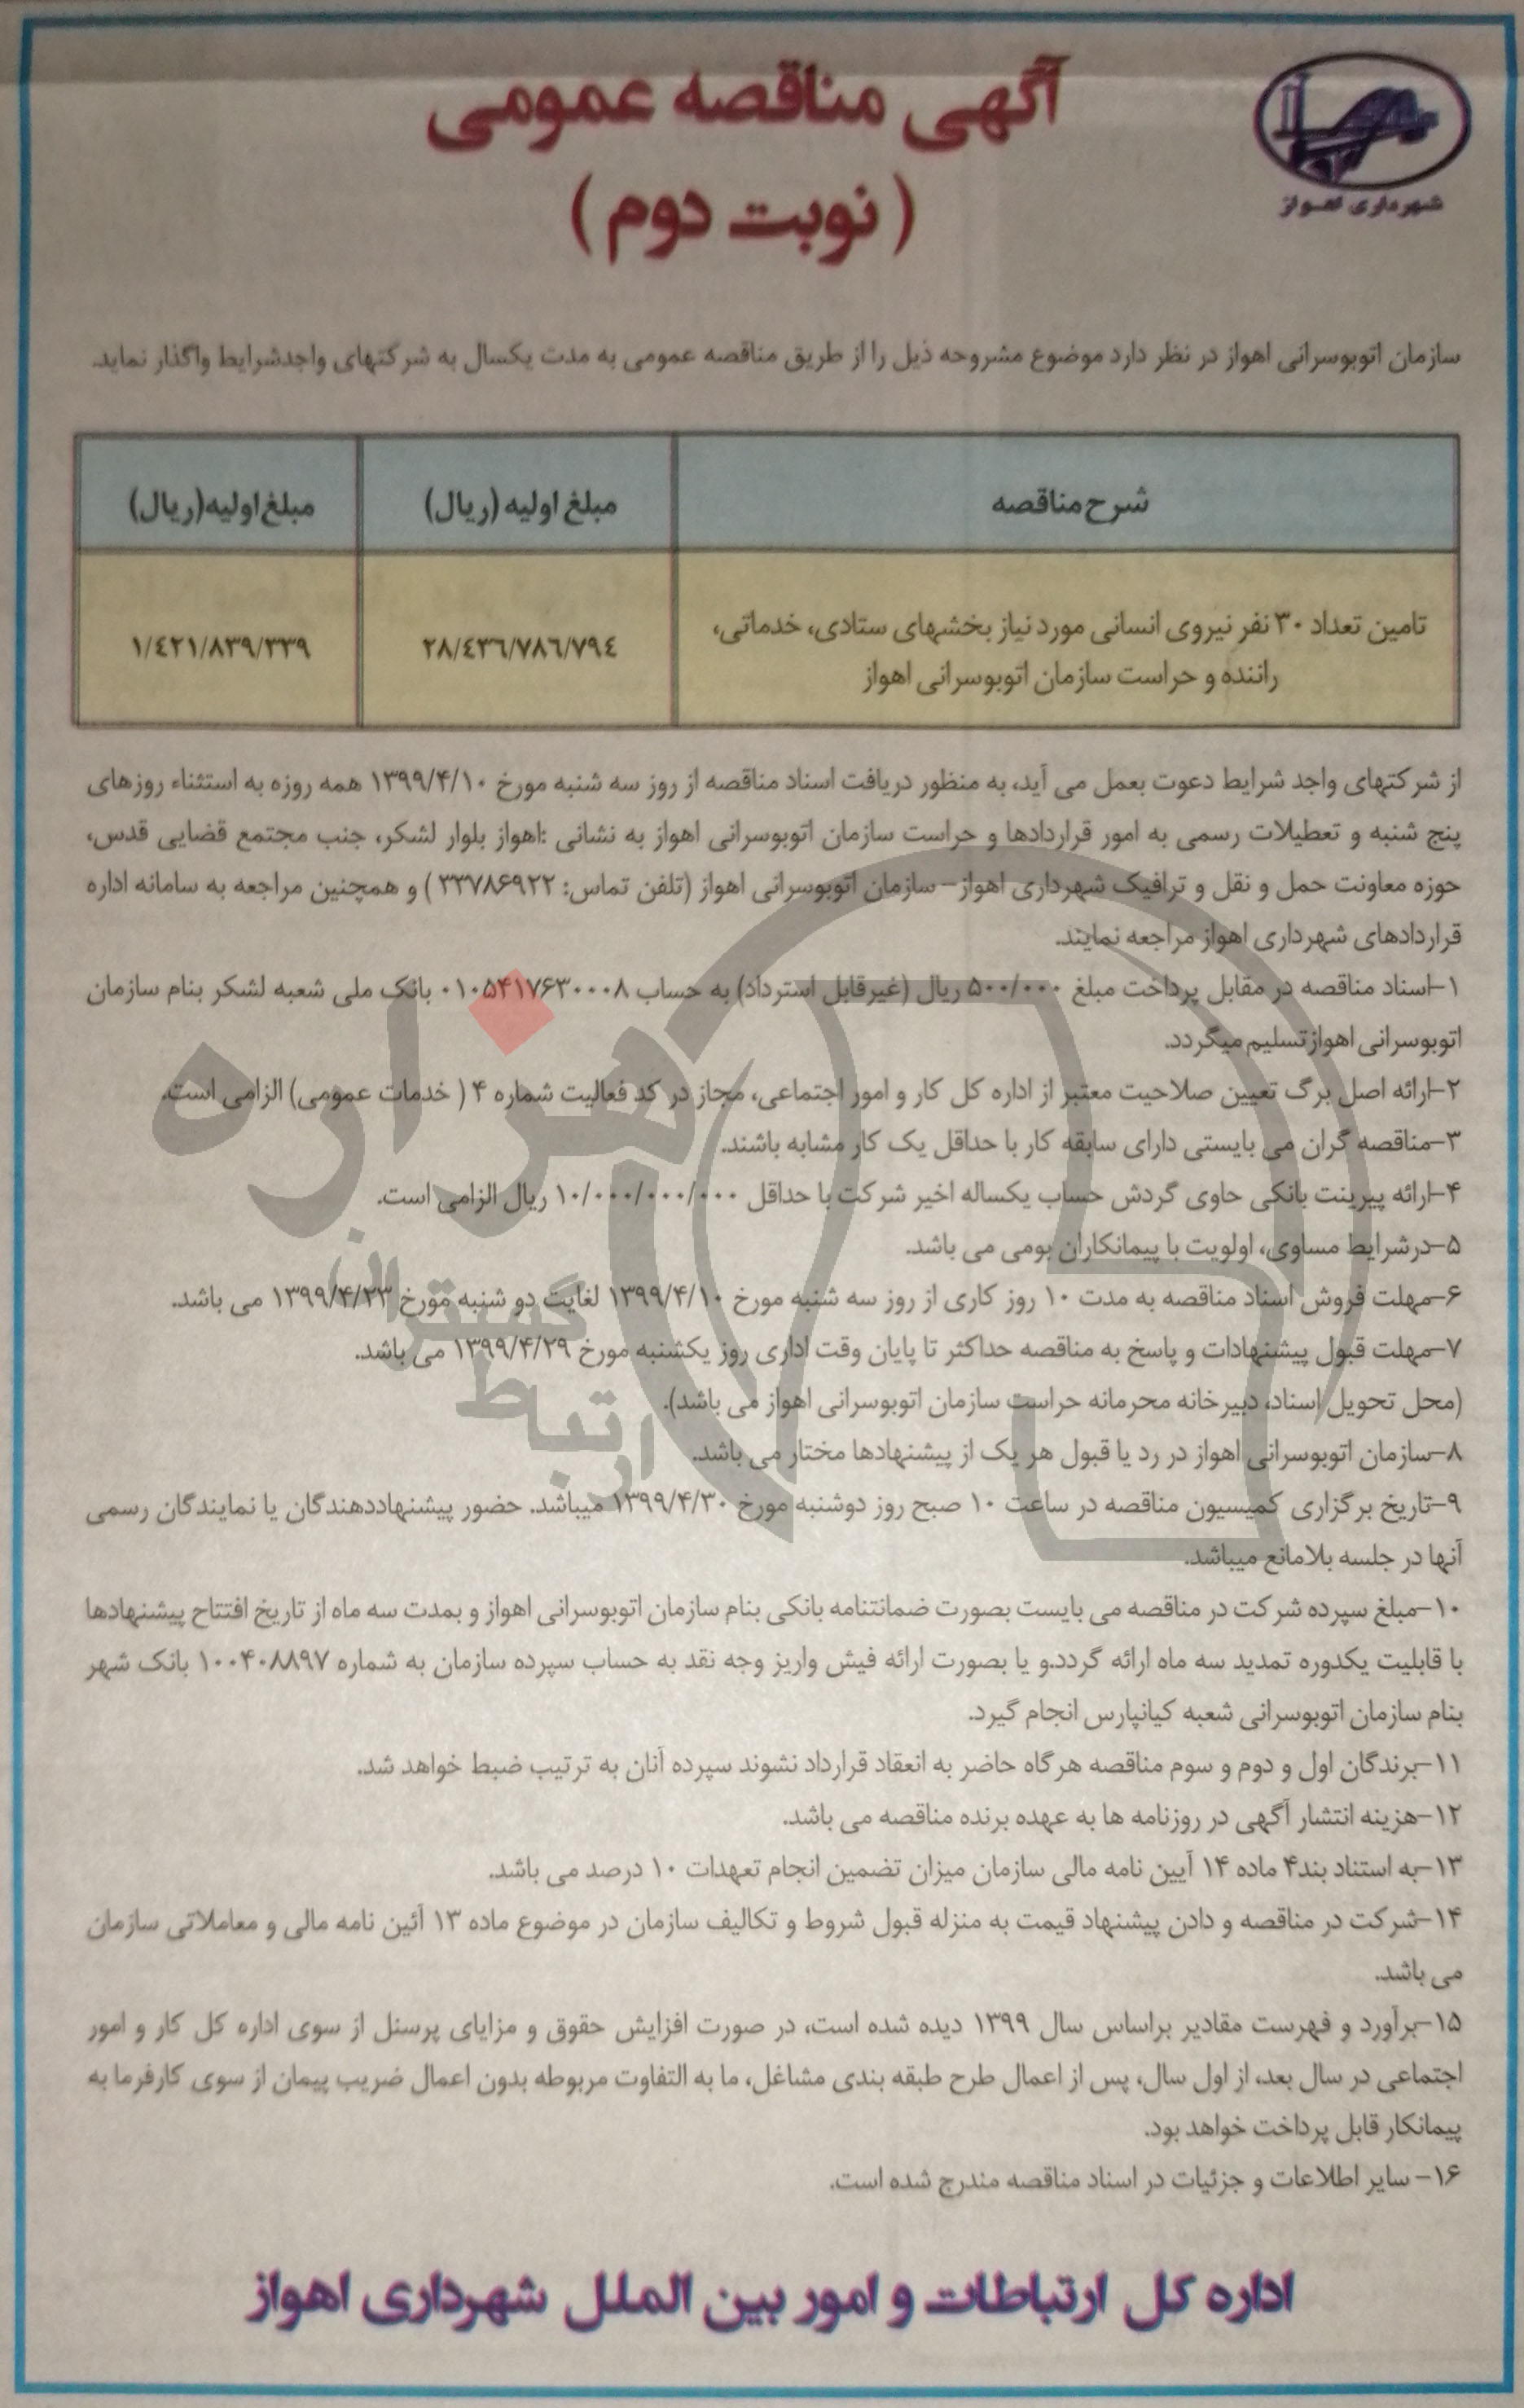 شهرداری اهواز
آگهی مناقصه عمومی
( نوبت دوم )
سازمان اتوبوسرانی اهواز در نظر دارد موضوع مشروحه ذیل را از طریق مناقصه عمومی به مدت یکسال به شرکتهای واجدشرایط واگذار نماید.
شرح مناقصه
مبلغ اولیه (ریال)
مبلغ اولیه(ریال)
تامین تعداد ۳۰ نفر نیروی انسانی مورد نیاز بخشهای ستادی، خدماتی،
راننده و حراست سازمان اتوبوسرانی اهواز
۲۸/٤۳٦/۷۸٦/۷۹٤
۱/٤۲۱/۸۳۹/۳۳۹
از شرکتهای واجد شرایط دعوت بعمل می آید، به منظور دریافت اسناد مناقصه از روز سه شنبه مورخ ۱۳۹۹/۴/۱۰ همه روزه به استثناء روزهای
پنج شنبه و تعطیلات رسمی به امور قراردادها و حراست سازمان اتوبوسرانی اهواز به نشانی :اهواز بلوار لشکر، جنب مجتمع قضایی قدس،
حوزه معاونت حمل و نقل و ترافیک شهرداری اهواز– سازمان اتوبوسرانی اهواز (تلفن تماس: ۳۳۷۸۶۹۲۲ ) و همچنین مراجعه به سامانه اداره
قراردادهای شهرداری اهواز مراجعه نمایند.
۱–اسناد مناقصه در مقابل پرداخت مبلغ ۵۰۰/۰۰۰ ریال (غیرقابل استرداد) به حساب ۰۱۰۵۴۱۷۶۳۰۰۰۸ بانک ملی شعبه لشکر بنام سازمان
اتوبوسرانی اهواز تسلیم میگردد.
۲–ارائه اصل برگ تعیین صلاحیت معتبر از اداره کل کار و امور اجتماعی، مجاز در کد فعالیت شماره ۴ ( خدمات عمومی) الزامی است.
۳–مناقصه گران می بایستی دارای سابقه کار با حداقل یک کار مشابه باشند.
۴–ارائه پیرینت بانکی حاوی گردش حساب یکساله اخیر شرکت با حداقل ۱۰/۰۰۰/۰۰۰/۰۰۰ ریال الزامی است.
۵–درشرایط مساوی، اولویت با پیمانکاران بومی می باشد.
۶–مهلت فروش اسناد مناقصه به مدت ۱۰ روز کاری از روز سه شنبه مورخ ۱۳۹۹/۴/۱۰ لغایت دو شنبه مورخ ۱۳۹۹/۴/۲۳ می باشد.
۷–مهلت قبول پیشنهادات و پاسخ به مناقصه حداکثر تا پایان وقت اداری روز یکشنبه مورخ ۱۳۹۹/۴/۲۹ می باشد.
(محل تحویل اسناد، دبیرخانه محرمانه حراست سازمان اتوبوسرانی اهواز می باشد).
۸–سازمان اتوبوسرانی اهواز در رد یا قبول هر یک از پیشنهادها مختار می باشد.
۹–تاریخ برگزاری کمیسیون مناقصه در ساعت ۱۰ صبح روز دوشنبه مورخ ۱۳۹۹/۴/۳۰ میباشد. حضور پیشنهاددهندگان یا نمایندگان رسمی
آنها در جلسه بلامانع میباشد.
۱۰–مبلغ سپرده شرکت در مناقصه می بایست بصورت ضمانتنامه بانکی بنام سازمان اتوبوسرانی اهواز و بمدت سه ماه از تاریخ افتتاح پیشنهادها
با قابلیت یکدوره تمدید سه ماه ارائه گردد.و یا بصورت ارائه فیش واریز وجه نقد به حساب سپرده سازمان به شماره ۱۰۰۴۰۸۸۹۷ بانک شهر
بنام سازمان اتوبوسرانی شعبه کیانپارس انجام گیرد.
۱۱–برندگان اول و دوم و سوم مناقصه هرگاه حاضر به انعقاد قرارداد نشوند سپرده آنان به ترتیب ضبط خواهد شد.
۱۲–هزینه انتشار آگهی در روزنامه ها به عهده برنده مناقصه می باشد.
۱۳–به استناد بند۴ ماده ۱۴ آیین نامه مالی سازمان میزان تضمین انجام تعهدات ۱۰ درصد می باشد.
۱۴–شرکت در مناقصه و دادن پیشنهاد قیمت به منزله قبول شروط و تکالیف سازمان در موضوع ماده ۱۳ آئین نامه مالی و معاملاتی سازمان
می باشد.
۱۵–برآورد و فهرست مقادیر براساس سال ۱۳۹۹ دیده شده است، در صورت افزایش حقوق و مزایای پرسنل از سوی اداره کل کار و امور
اجتماعی در سال بعد، از اول سال، پس از اعمال طرح طبقه بندی مشاغل، ما به التفاوت مربوطه بدون اعمال ضریب پیمان از سوی کارفرما به
پیمانکار قابل پرداخت خواهد بود.
۱۶– سایر اطلاعات و جزئیات در اسناد مناقصه مندرج شده است.
اداره کل ارتباطات و امور بین الملل شهرداری اهواز
هزاره
ارتباط
گستران